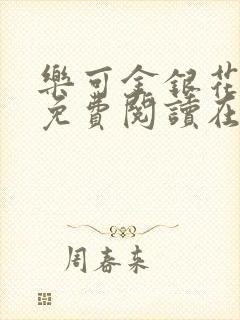 樂可金銀花
免費閱讀在
周春来